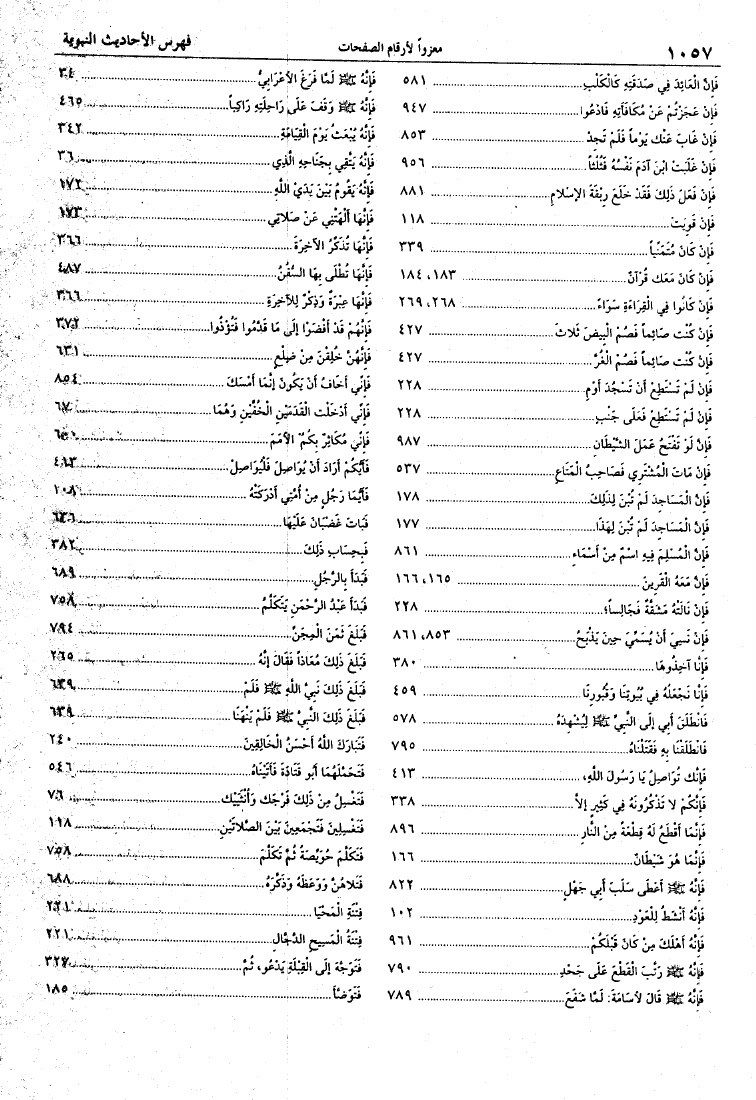 ١٠٥٧
معزواً لأرقام الصفحات
فهرس الأحاديث النبوية
فَإِنَّ الْعَائِدَ فِي صَدَقَتِهِ كَالْكَلْبِ ........ ٥٨١
فَإِنْ عَجَزْتُمْ عَنْ مُكَافَأَتِهِ فَادْعُوا ........ ٩٤٧
فَإِنْ غَابَ عَنْكَ يَوْماً فَلَمْ تَجِدْ ........ ٨٥٣
فَإِنْ غَلَبَتْ ابْنَ آدَمَ نَفْسُهُ فَثُلُثاً ........ ٩٥٦
فَإِنْ فَعَلَ ذَلِكَ فَقَدْ خَلَعَ رِبْقَةَ الإِسْلاَمِ ........ ٨٨١
فَإِنْ قَوِيتَ ........ ١١٨
فَإِنْ كَانَ مُتَمَنِّياً ........ ٣٣٩
فَإِنْ كَانَ مَعَكَ قُرْآنٌ ........ ١٨٣، ١٨٤
فَإِنْ كَانُوا فِي الْقِرَاءَةِ سَوَاءً ........ ٢٦٨، ٢٦٩
فَإِنْ كُنْتَ صَائِماً فَصُمْ الْبِيضَ ثَلاَثَ ........ ٤٢٧
فَإِنْ كُنْتَ صَائِماً فَصُمْ الْغُرَّ ........ ٤٢٧
فَإِنْ لَمْ تَسْتَطِعْ أَنْ تَسْجُدَ أَوْمِ ........ ٢٢٨
فَإِنْ لَمْ تَسْتَطِعْ فَعَلَى جَنْبٍ ........ ٢٢٨
فَإِنَّ لَوْ تَفْتَحُ عَمَلَ الشَّيْطَانِ ........ ٩٨٧
فَإِنْ مَاتَ الْمُشْتَرِي فَصَاحِبُ الْمَتَاعِ ........ ٥٣٧
فَإِنَّ الْمَسَاجِدَ لَمْ تُبْنَ لِذَلِكَ ........ ١٧٨
فَإِنَّ الْمَسَاجِدَ لَمْ تُبْنَ لِهَذَا ........ ١٧٧
فَإِنَّ الْمُسْلِمَ فِيهِ اسْمٌ مِنْ أَسْمَاءِ ........ ٨٦١
فَإِنَّ مَعَهُ الْقَرِينَ ........ ١٦٥، ١٦٦
فَإِنْ نَالَتْهُ مَشَقَّةٌ فَجَالِساً؛ ........ ٢٢٨
فَإِنْ نَسِيَ أَنْ يُسَمِّيَ حِينَ يَذْبَحُ ........ ٨٥٣، ٨٦١
فَإِنَّا آخِذُوهَا ........ ٣٨٠
فَإِنَّا نَجْعَلُهُ فِي بُيُوتِنَا وَقُبُورِنَا ........ ٤٥٩
فَانْطَلَقَ أَبِي إِلَى النَّبِيِّ ﷺ لِيُشْهِدَهُ ........ ٥٧٨
فَانْطَلَقْنَا بِهِ فَقَتَلْنَاهُ ........ ٧٩٥
فَإِنَّكَ تُوَاصِلُ يَا رَسُولَ اللَّهِ، ........ ٤١٣
فَإِنَّكُمْ لاَ تَذْكُرُونَهُ فِي كَثِيرٍ إِلاَّ ........ ٣٣٨
فَإِنَّمَا أَقْطَعُ لَهُ قِطْعَةً مِنَ النَّارِ ........ ٨٩٦
فَإِنَّمَا هُوَ شَيْطَانٌ ........ ١٦٦
فَإِنَّهُ ﷺ أَعْطَى سَلَبَ أَبِي جَهْلٍ ........ ٨٢٢
فَإِنَّهُ أَنْشَطُ لِلْعَوْدِ ........ ١٠٢
فَإِنَّهُ أَهْلَكَ مَنْ كَانَ قَبْلَكُمْ ........ ٩٦١
فَإِنَّهُ ﷺ رَتَّبَ الْقَطْعَ عَلَى جَحْدِ ........ ٧٩٠
فَإِنَّهُ ﷺ قَالَ لأُسَامَةَ: لَمَّا شَفَعَ ........ ٧٨٩
فَإِنَّهُ ﷺ لَمَّا فَرَغَ الأَعْرَابِيُّ ........ ٣٤
فَإِنَّهُ ﷺ وَقَفَ عَلَى رَاحِلَتِهِ رَاكِباً ........ ٤٦٥
فَإِنَّهُ يُبْعَثُ يَوْمَ الْقِيَامَةِ ........ ٣٤٢
فَإِنَّهُ يَتَّقِي بِجَنَاحِهِ الَّذِي ........ ٣٦
فَإِنَّهُ يَقُومُ بَيْنَ يَدَيِ اللَّهِ ........ ١٧٢
فَإِنَّهَا أَلْهَتْنِي عَنْ صَلاَتِي ........ ١٧٣
فَإِنَّهَا تُذَكِّرُ الآخِرَةَ ........ ٣٦٦
فَإِنَّهَا تُطْلَى بِهَا السُّفُنُ ........ ٤٨٧
فَإِنَّهَا عِبْرَةٌ وَذِكْرٌ لِلآخِرَةِ ........ ٣٦٦
فَإِنَّهُمْ قَدْ أَفْضَوْا إِلَى مَا قَدَّمُوا فَتُؤْذُوا ........ ٣٧٢
فَإِنَّهُنَّ خُلِقْنَ مِنْ ضِلْعٍ ........ ٦٣١
فَإِنِّي أَخَافُ أَنْ يَكُونَ إِنَّمَا أَمْسَكَ ........ ٨٥٤
فَإِنِّي أَدْخَلْتُ الْقَدَمَيْنِ الْخُفَّيْنِ وَهُمَا ........ ٦٧
فَإِنِّي مُكَاثِرٌ بِكُمُ الأُمَمَ ........ ٦٥٠
فَأَيُّكُمْ أَرَادَ أَنْ يُوَاصِلَ فَلْيُوَاصِلْ ........ ٤١٣
فَأَيُّمَا رَجُلٍ مِنْ أُمَّتِي أَدْرَكَتْهُ ........ ١٠٨
فَبَاتَ غَضْبَانَ عَلَيْهَا ........ ٦٣٦
فَبِحِسَابِ ذَلِكَ ........ ٣٨٢
فَبَدَأَ بِالرَّجُلِ ........ ٦٨٩
فَبَدَأَ عَبْدُ الرَّحْمَنِ يَتَكَلَّمُ ........ ٧٥٨
فَبَلَغَ ثَمَنَ الْمِجَنِّ ........ ٧٩٤
فَبَلَغَ ذَلِكَ مُعَاذاً فَقَالَ إِنَّهُ ........ ٢٦٥
فَبَلَغَ ذَلِكَ نَبِيَّ اللَّهِ ﷺ فَلَمْ ........ ٦٣٩
فَبَلَغَ ذَلِكَ النَّبِيَّ ﷺ فَلَمْ يَنْهَنَا ........ ٦٣٩
فَتَبَارَكَ اللَّهُ أَحْسَنُ الْخَالِقِينَ ........ ٢٤٠
فَتَحَمَّلَهُمَا أَبُو قَتَادَةَ فَأَتَيْنَاهُ ........ ٥٤٦
فَتَغْسِلُ مِنْ ذَلِكَ فَرْجَكَ وَأُنْثَيَيْكَ ........ ٧٦
فَتَغْتَسِلِينَ فَتَجْمَعِينَ بَيْنَ الصَّلاَتَيْنِ ........ ١١٨
فَتَكَلَّمَ حُوَيِّصَةُ ثُمَّ تَكَلَّمَ ........ ٧٥٨
فَتَلاَهُنَّ وَوَعَظَهُ وَذَكَّرَهُ ........ ٦٨٨
فِتْنَةِ الْمَحْيَا ........ ٢٢١
فِتْنَةُ الْمَسِيحِ الدَّجَّالِ ........ ٢٢١
فَتَوَجَّهَ إِلَى الْقِبْلَةِ يَدْعُو، ثُمَّ ........ ٣٢٧
فَتَوَضَّأَ ........ ١٨٥